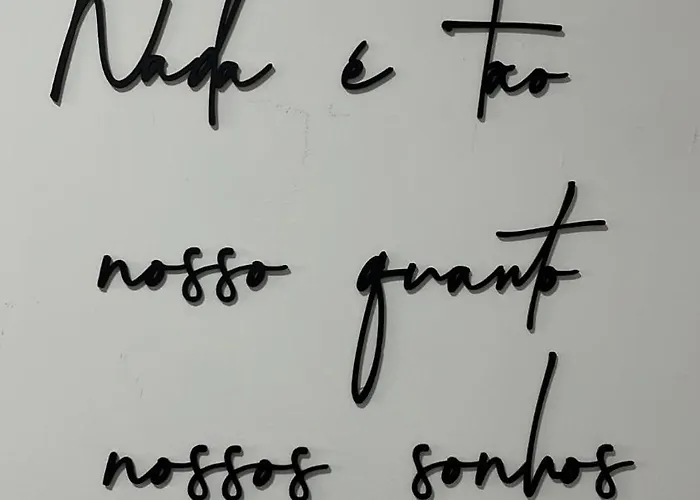 Nada é tao
nosso quanto
nossos sonhos